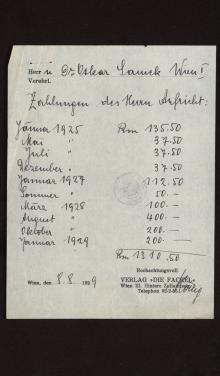 Herrn Dr Oskar Samek Wien I
Verehrl.
Zahlungen des Herrn Aufricht:
Jänna 1925 Rm 135.50
Mai " 37.50
Juli " 37.50
Dezember " 37.50
Januar 1927 112.50
Sommer " 50.—
März 1928 100.—
August " 400.—
Oktober " 200.—
Januar 1929 200.—
Rm 1310.50
Hochachtungsvoll
VERLAG »DIE FACKEL«
Wien, den 8.8 1929
Wien III, Hintere Zollamtsstr.
Telephon